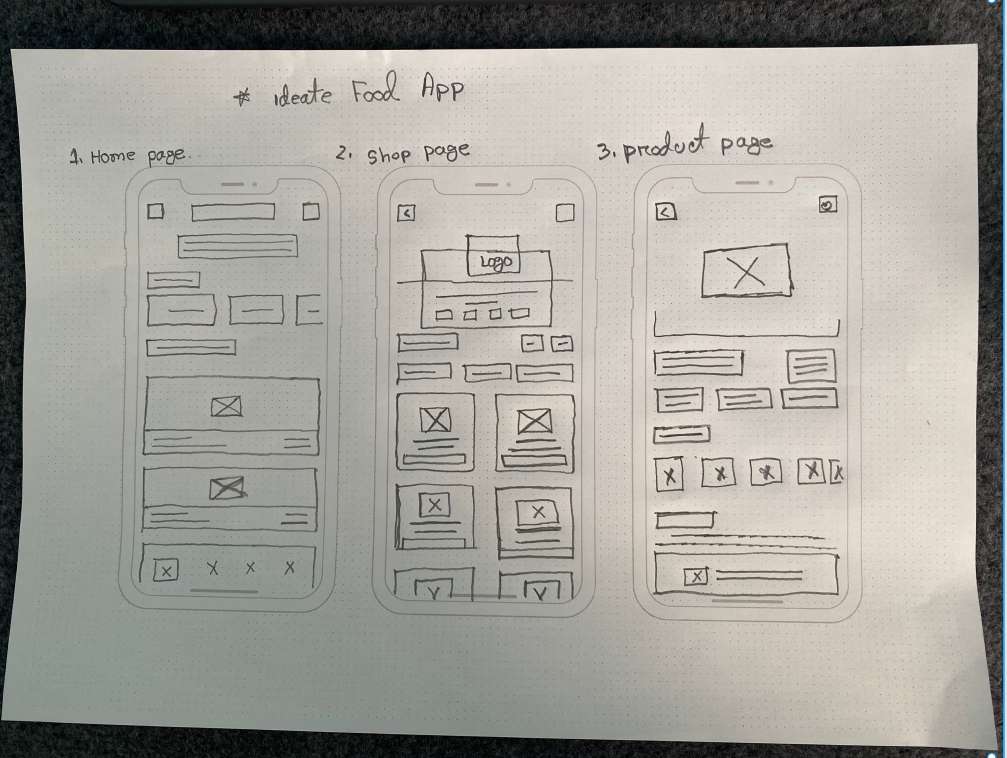 * ideate Food App
1. Home page.
2. shop page
3. product page
Logo